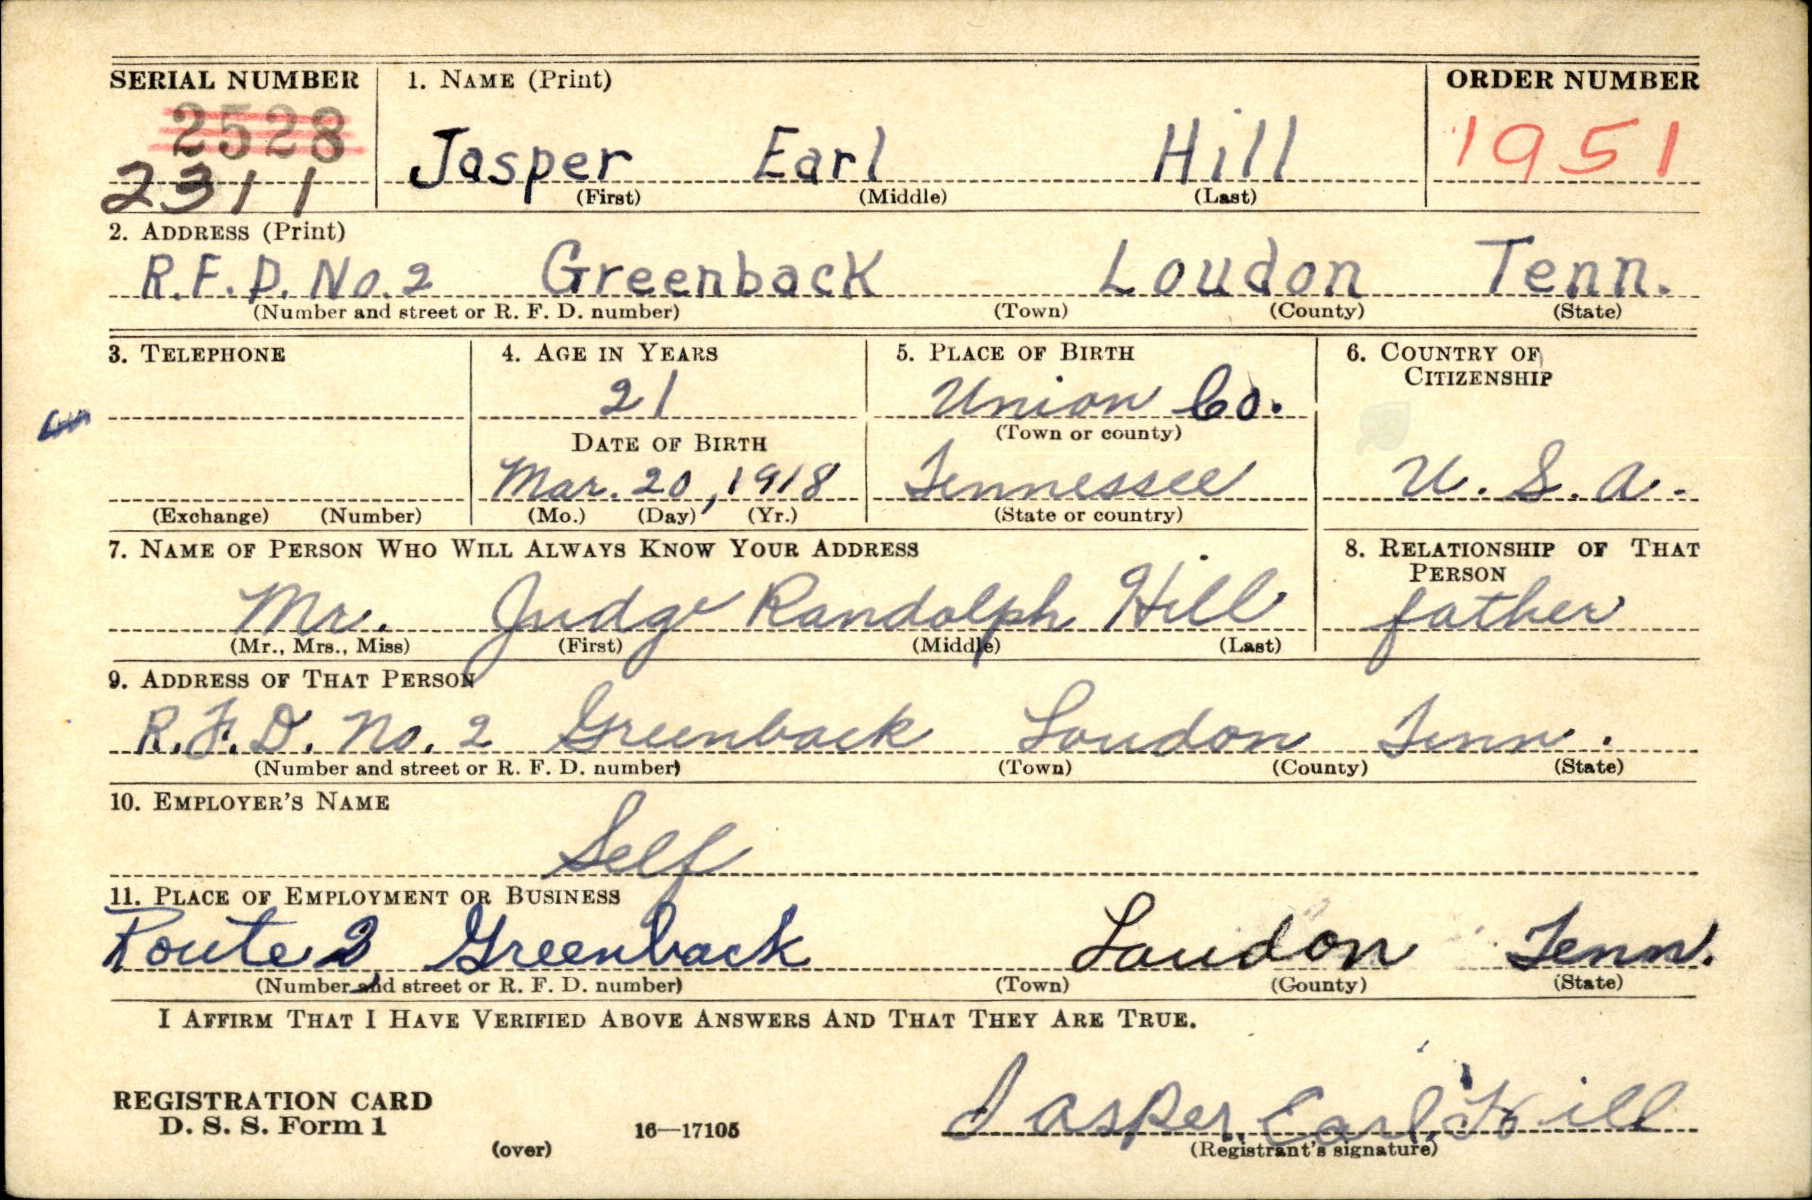 SERIAL NUMBER 1. NAME (Print) ORDER NUMBER
2528
2311 Jasper Earl Hill 1951
(First) (Middle) (Last)
2. ADDRESS (Print)
R.F.D. No. 2 Greenback Loudon Tenn.
(Number and street or R. F. D. number) (Town) (County) (State)
3. TELEPHONE 4. AGE IN YEARS 5. PLACE OF BIRTH 6. COUNTRY OF
CITIZENSHIP
21 Union Co.
(Town or county)
DATE OF BIRTH
Mar. 20, 1918 Tennessee U.S.A.
(Exchange) (Number) (Mo.) (Day) (Yr.) (State or country)
7. NAME OF PERSON WHO WILL ALWAYS KNOW YOUR ADDRESS 8. RELATIONSHIP OF THAT
PERSON
Mr. Judge Randolph Hill father
(Mr., Mrs., Miss) (First) (Middle) (Last)
9. ADDRESS OF THAT PERSON
R.F.D. No. 2 Greenback Loudon Tenn.
(Number and street or R. F. D. number) (Town) (County) (State)
10. EMPLOYER'S NAME
Self
11. PLACE OF EMPLOYMENT OR BUSINESS
Route 2, Greenback Loudon Tenn.
(Number and street or R. F. D. number) (Town) (County) (State)
I AFFIRM THAT I HAVE VERIFIED ABOVE ANSWERS AND THAT THEY ARE TRUE.
REGISTRATION CARD
D. S. S. Form 1 Jasper Earl Hill
(over) 16—17105 (Registrant's signature)